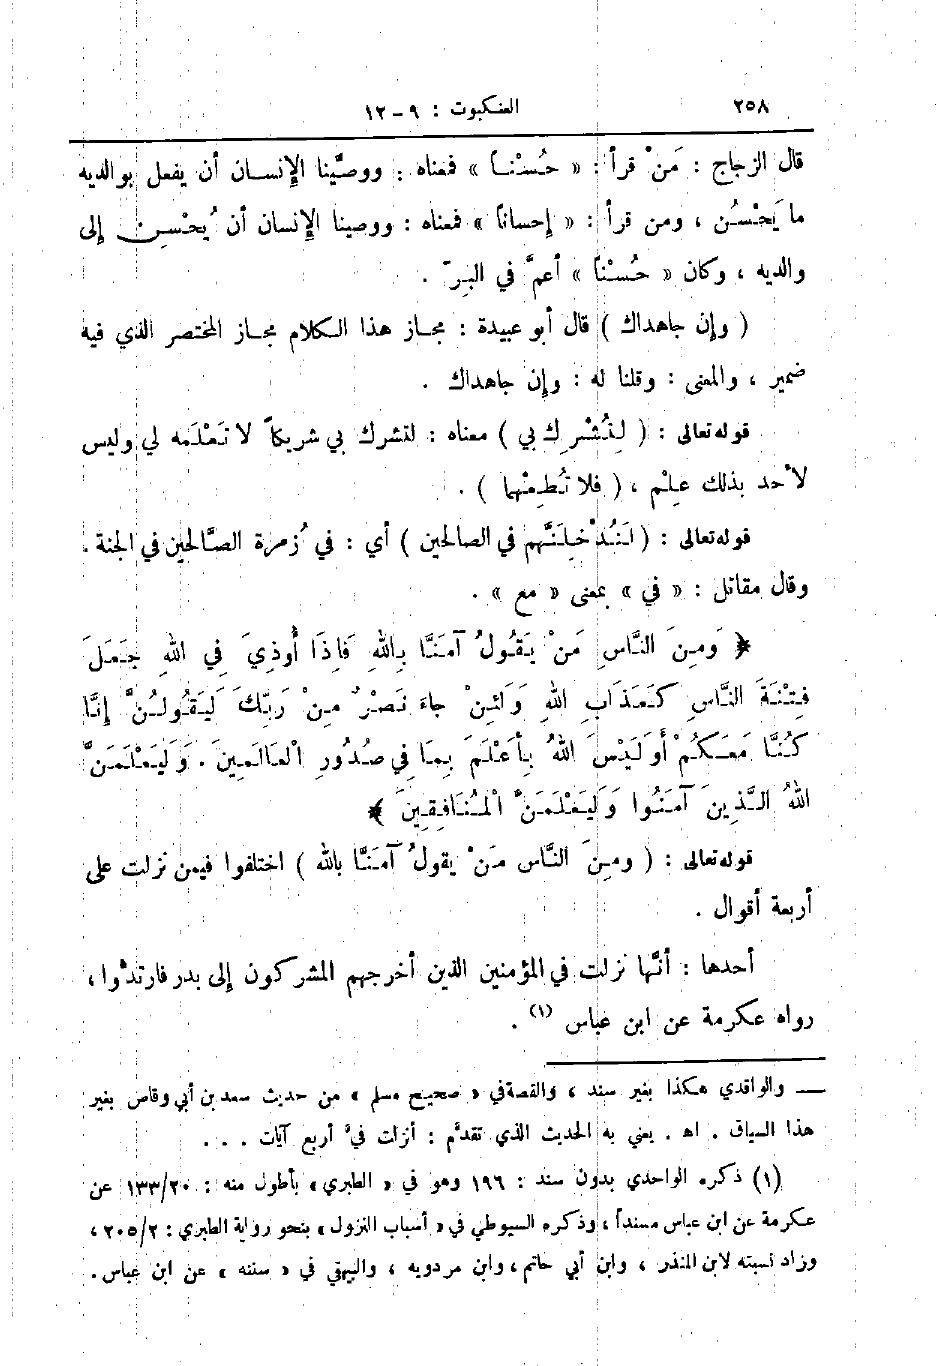 ٢٥٨ العنكبوت : ٩ - ١٢
قال الزجاج : مَنْ قرأ : « حُسْنـاً » فمعناه : ووصَّينا الإنسـان أن يفعل بوالديه
ما يَحْسُن ، ومن قرأ : « إحساناً » فمعناه : ووصينا الإنسان أن يُحْسِن إلى
والديه ، وكان « حُسْناً » أعمَّ في البِرّ .
( وإن جاهداك ) قال أبو عبيدة : مجاز هذا الـكلام مجـاز المختصر الذي فيه
ضمير ، والمعنى : وقلنا له : وإن جاهداك .
قوله تعالى : ( لِتُشْرِك بي ) معناه : لتشرك بي شريكاً لا تَعْلَمه لي وليس
لأحد بذلك عِلْم ، ( فلا تُطِعْهما ) .
قوله تعالى : ( لَنُدْخِلَنَّهم في الصالحين ) أي : في زُمرة الصَّالحين في الجنة .
وقال مقاتل : « في » بمعنى « مع » .
﴿ وَمِنَ النَّاسِ مَنْ يَقُولُ آمَنَّا بِاللهِ فَإِذَا أُوذِيَ فِي اللهِ جَعَلَ
فِتْنَةَ النَّاسِ كَعَذَابِ اللهِ وَلَئِنْ جاءَ نَصْرٌ مِنْ رَبِّكَ لَيَقُولُنَّ إِنَّا
كُنَّا مَعَكُمْ أَوَلَيْسَ اللهُ بِأَعْلَمَ بِمَا فِي صُدُورِ الْعَالَمِينَ . وَلَيَعْلَمَنَّ
اللهُ الَّذِينَ آمَنُوا وَلَيَعْلَمَنَّ الْمُنَافِقِينَ ﴾
قوله تعالى : ( ومِنَ النَّاس مَنْ يقولُ آمَنَّا بالله ) اختلفوا فيمن نزلت على
أربعة أقوال .
أحدها : أنَّها نزلت في المؤمنين الذين أخرجهم المشركون إلى بدر فارتدُّوا ،
رواه عكرمة عن ابن عباس (١) .
— والواقدي هكذا بغير سند ، والقصة في « صحيح مسلم » من حديث سعد بن أبي وقاص بغير
هذا السياق . اهـ . يعني به الحديث الذي تقدَّم : أنزلت فيَّ أربع آيات . . .
(١) ذكره الواحدي بدون سند : ١٩٦ وهو في « الطبري » بأطول منه : ١٣٣/٢٠ عن
عكرمة عن ابن عباس مسنداً ، وذكره السيوطي في « أسباب النزول » بنحو رواية الطبري : ٢٠٥/٢ ،
وزاد نسبته لابن المنذر ، وابن أبي حاتم ، وابن مردويه ، والبيهقي في « سننه » عن ابن عباس .